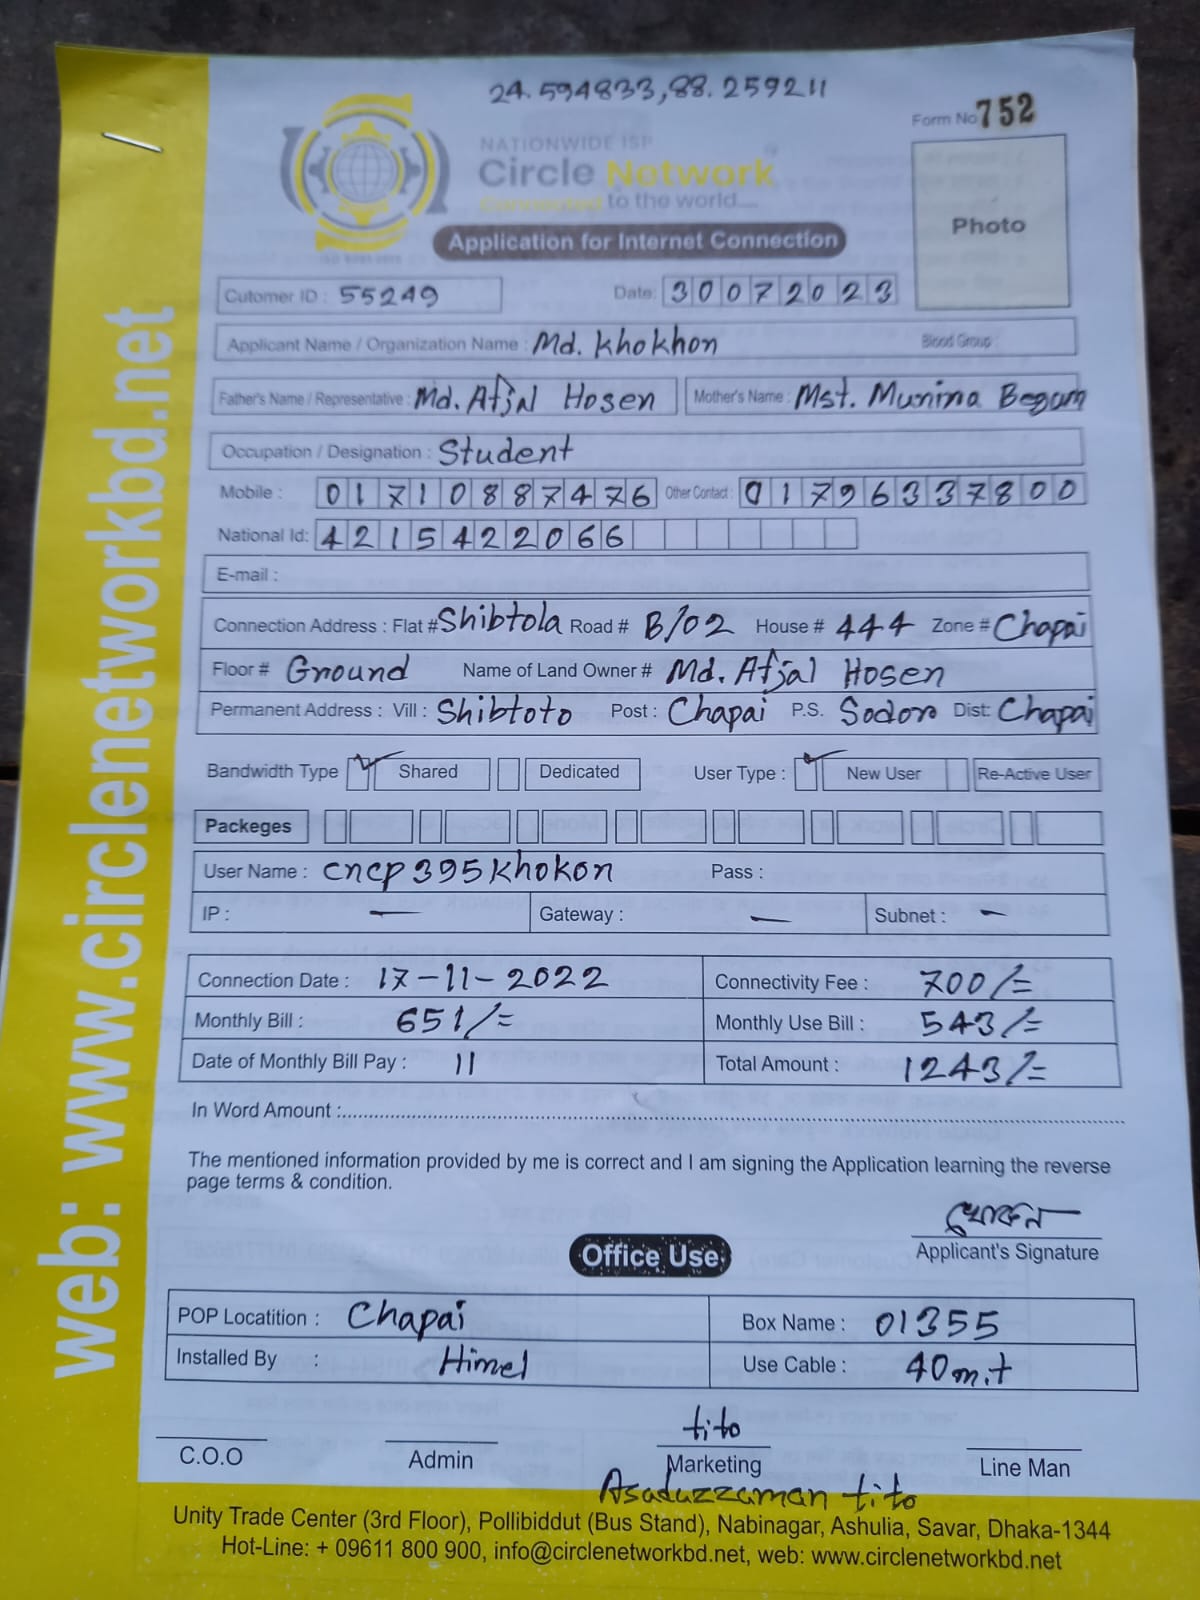 24.594833,88.259211
Form No 752
NATIONWIDE ISP
Circle Network
Connected to the world....
Photo
Application for Internet Connection
Cutomer ID : 55249 Date: 30072023
Applicant Name / Organization Name : Md. Khokhon Blood Group :
Father's Name / Representative : Md. Afjal Hosen Mother's Name : Mst. Munima Begam
Occupation / Designation : Student
Mobile : 01710887476 Other Contact : 01796337800
National Id: 4215422066
E-mail :
Connection Address : Flat # Shibtola Road # B/02 House # 444 Zone # Chapai
Floor # Ground Name of Land Owner # Md. Afjal Hosen
Permanent Address : Vill : Shibtoto Post : Chapai P.S. Sodor Dist: Chapai
Bandwidth Type Shared Dedicated User Type : New User Re-Active User
Packeges
User Name : cncp395khokon Pass :
IP : — Gateway : — Subnet : —
Connection Date : 17-11-2022 Connectivity Fee : 700/=
Monthly Bill : 651/= Monthly Use Bill : 543/=
Date of Monthly Bill Pay : 11 Total Amount : 1243/=
In Word Amount :
The mentioned information provided by me is correct and I am signing the Application learning the reverse
page terms & condition.
খোকন
Applicant's Signature
Office Use
POP Locatition : Chapai Box Name : 01355
Installed By : Himel Use Cable : 40m.t
tito
C.O.O Admin Marketing Line Man
Asaduzzaman tito
Unity Trade Center (3rd Floor), Pollibiddut (Bus Stand), Nabinagar, Ashulia, Savar, Dhaka-1344
Hot-Line: + 09611 800 900, info@circlenetworkbd.net, web: www.circlenetworkbd.net
web: www.circlenetworkbd.net